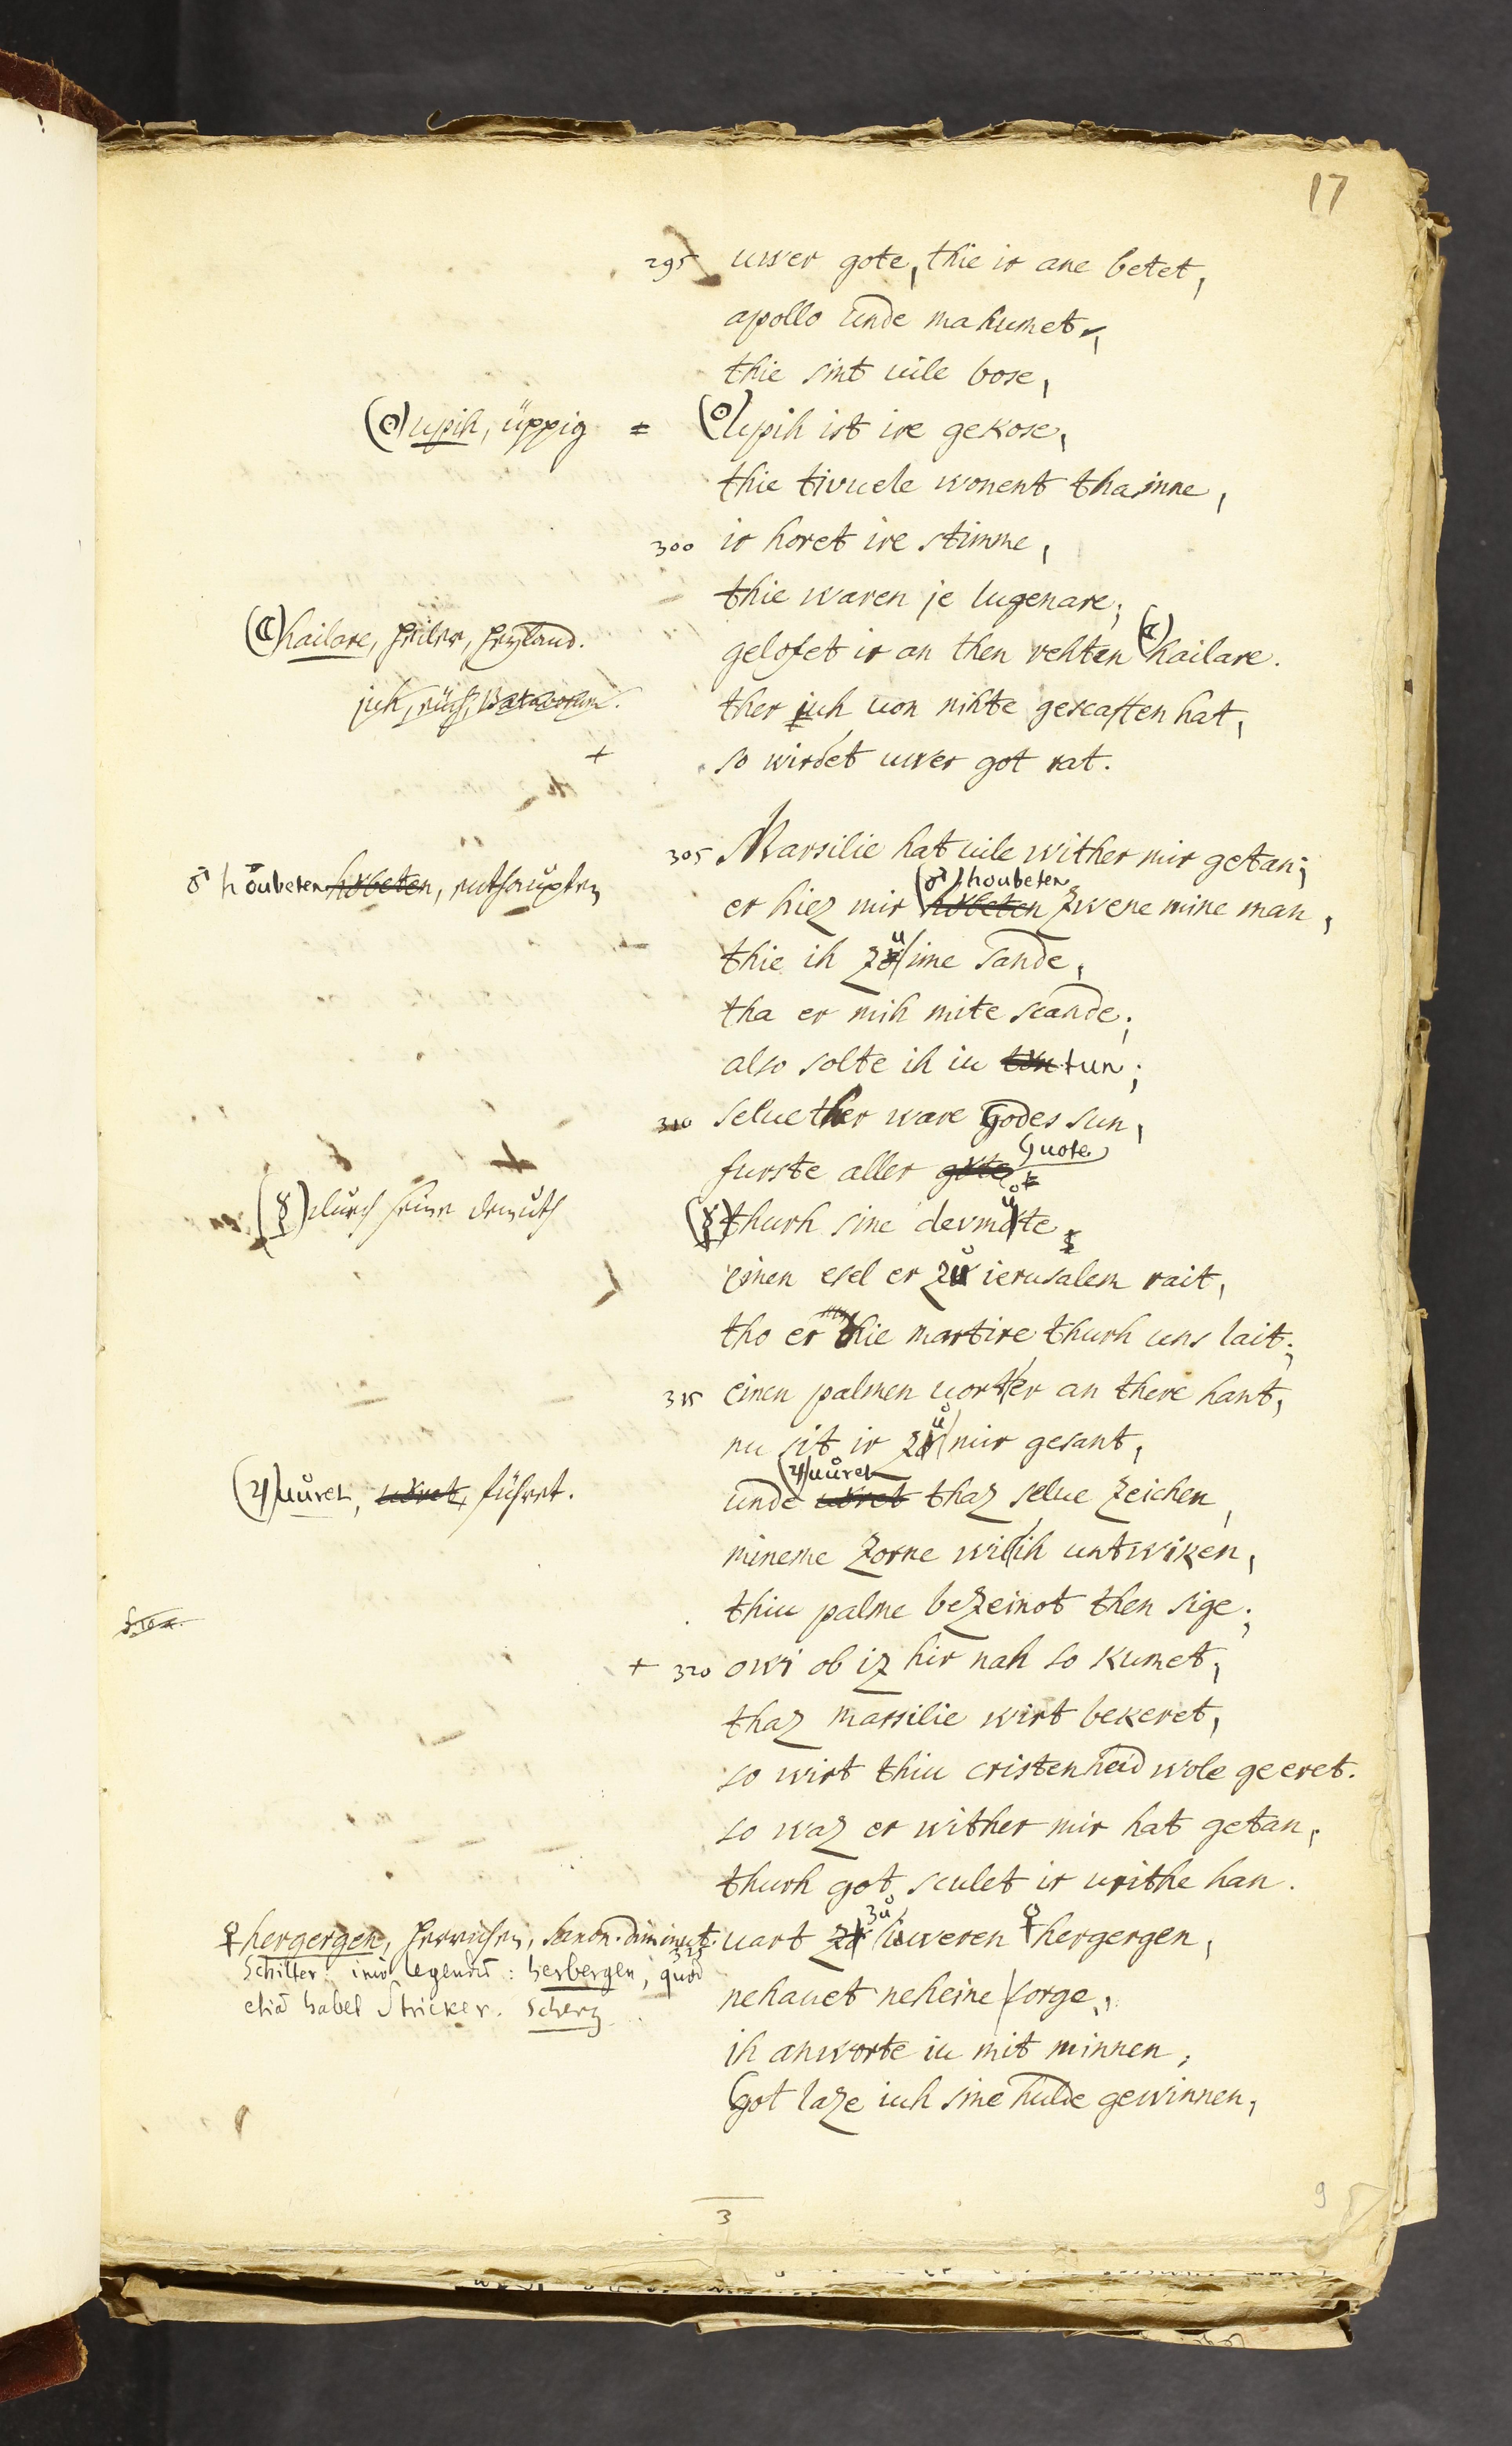 17
295 uwer gote, thie ir ane betet,
apollo unde mahumet,
thie sint uile bose,
(☉) upih, üppig = (☉) upih ist ire gekose,
thie tivuele wonent thar inne,
300 ir horet ire stimme,
thie waren je lugenare;
(☾) hailare, Heiler, Heyland.
gelofet ir an then rehten (☾) hailare.
juh, euch,
ther juh uon nihte gescaften hat,
+ so wirdet uwer got rat.
305 Marsilie hat uile wither mir getan;
♂ houbeten hobeten, enthaupten
er hiez mir (♂) houbeten hobeten zwene mine man,
thie ih zů ime sande,
tha er mih mite scande;
also solte ih iu ton tun;
310 selue ther ware Godes sun,
furste aller gote Guote
(☿) durch seine demuth
(☿) thurh sine deumůte
einen esel er zů ierusalem rait,
tho er thie martire thurh uns lait;
315 einen palmen uort er an there hant,
nu sit ir zů mir gesant,
(♃) uůret, uoret, führet.
unde (♃) uůret uoret thaz selue zeichen,
mineme zorne wil ih untwiken,
thiu palme bezeinot then sige;
+ 320 owi ob iz hir nah so kumet,
thaz marsilie wirt bekeret,
so wirt thiu cristenheid wole geeret.
so waz er wither mir hat getan,
thurh got sculet ir urithe han.
♀ hergergen, diminut.
325 uart zů iuweren ♀ hergergen,
Schilter: imo legendū: herbergen, quod
etiā habet Stricker. Scherz
nehauet neheine sorge,
ih anworte iu mit minnen,
Got laze iuh sine hulde gewinnen,
3
9